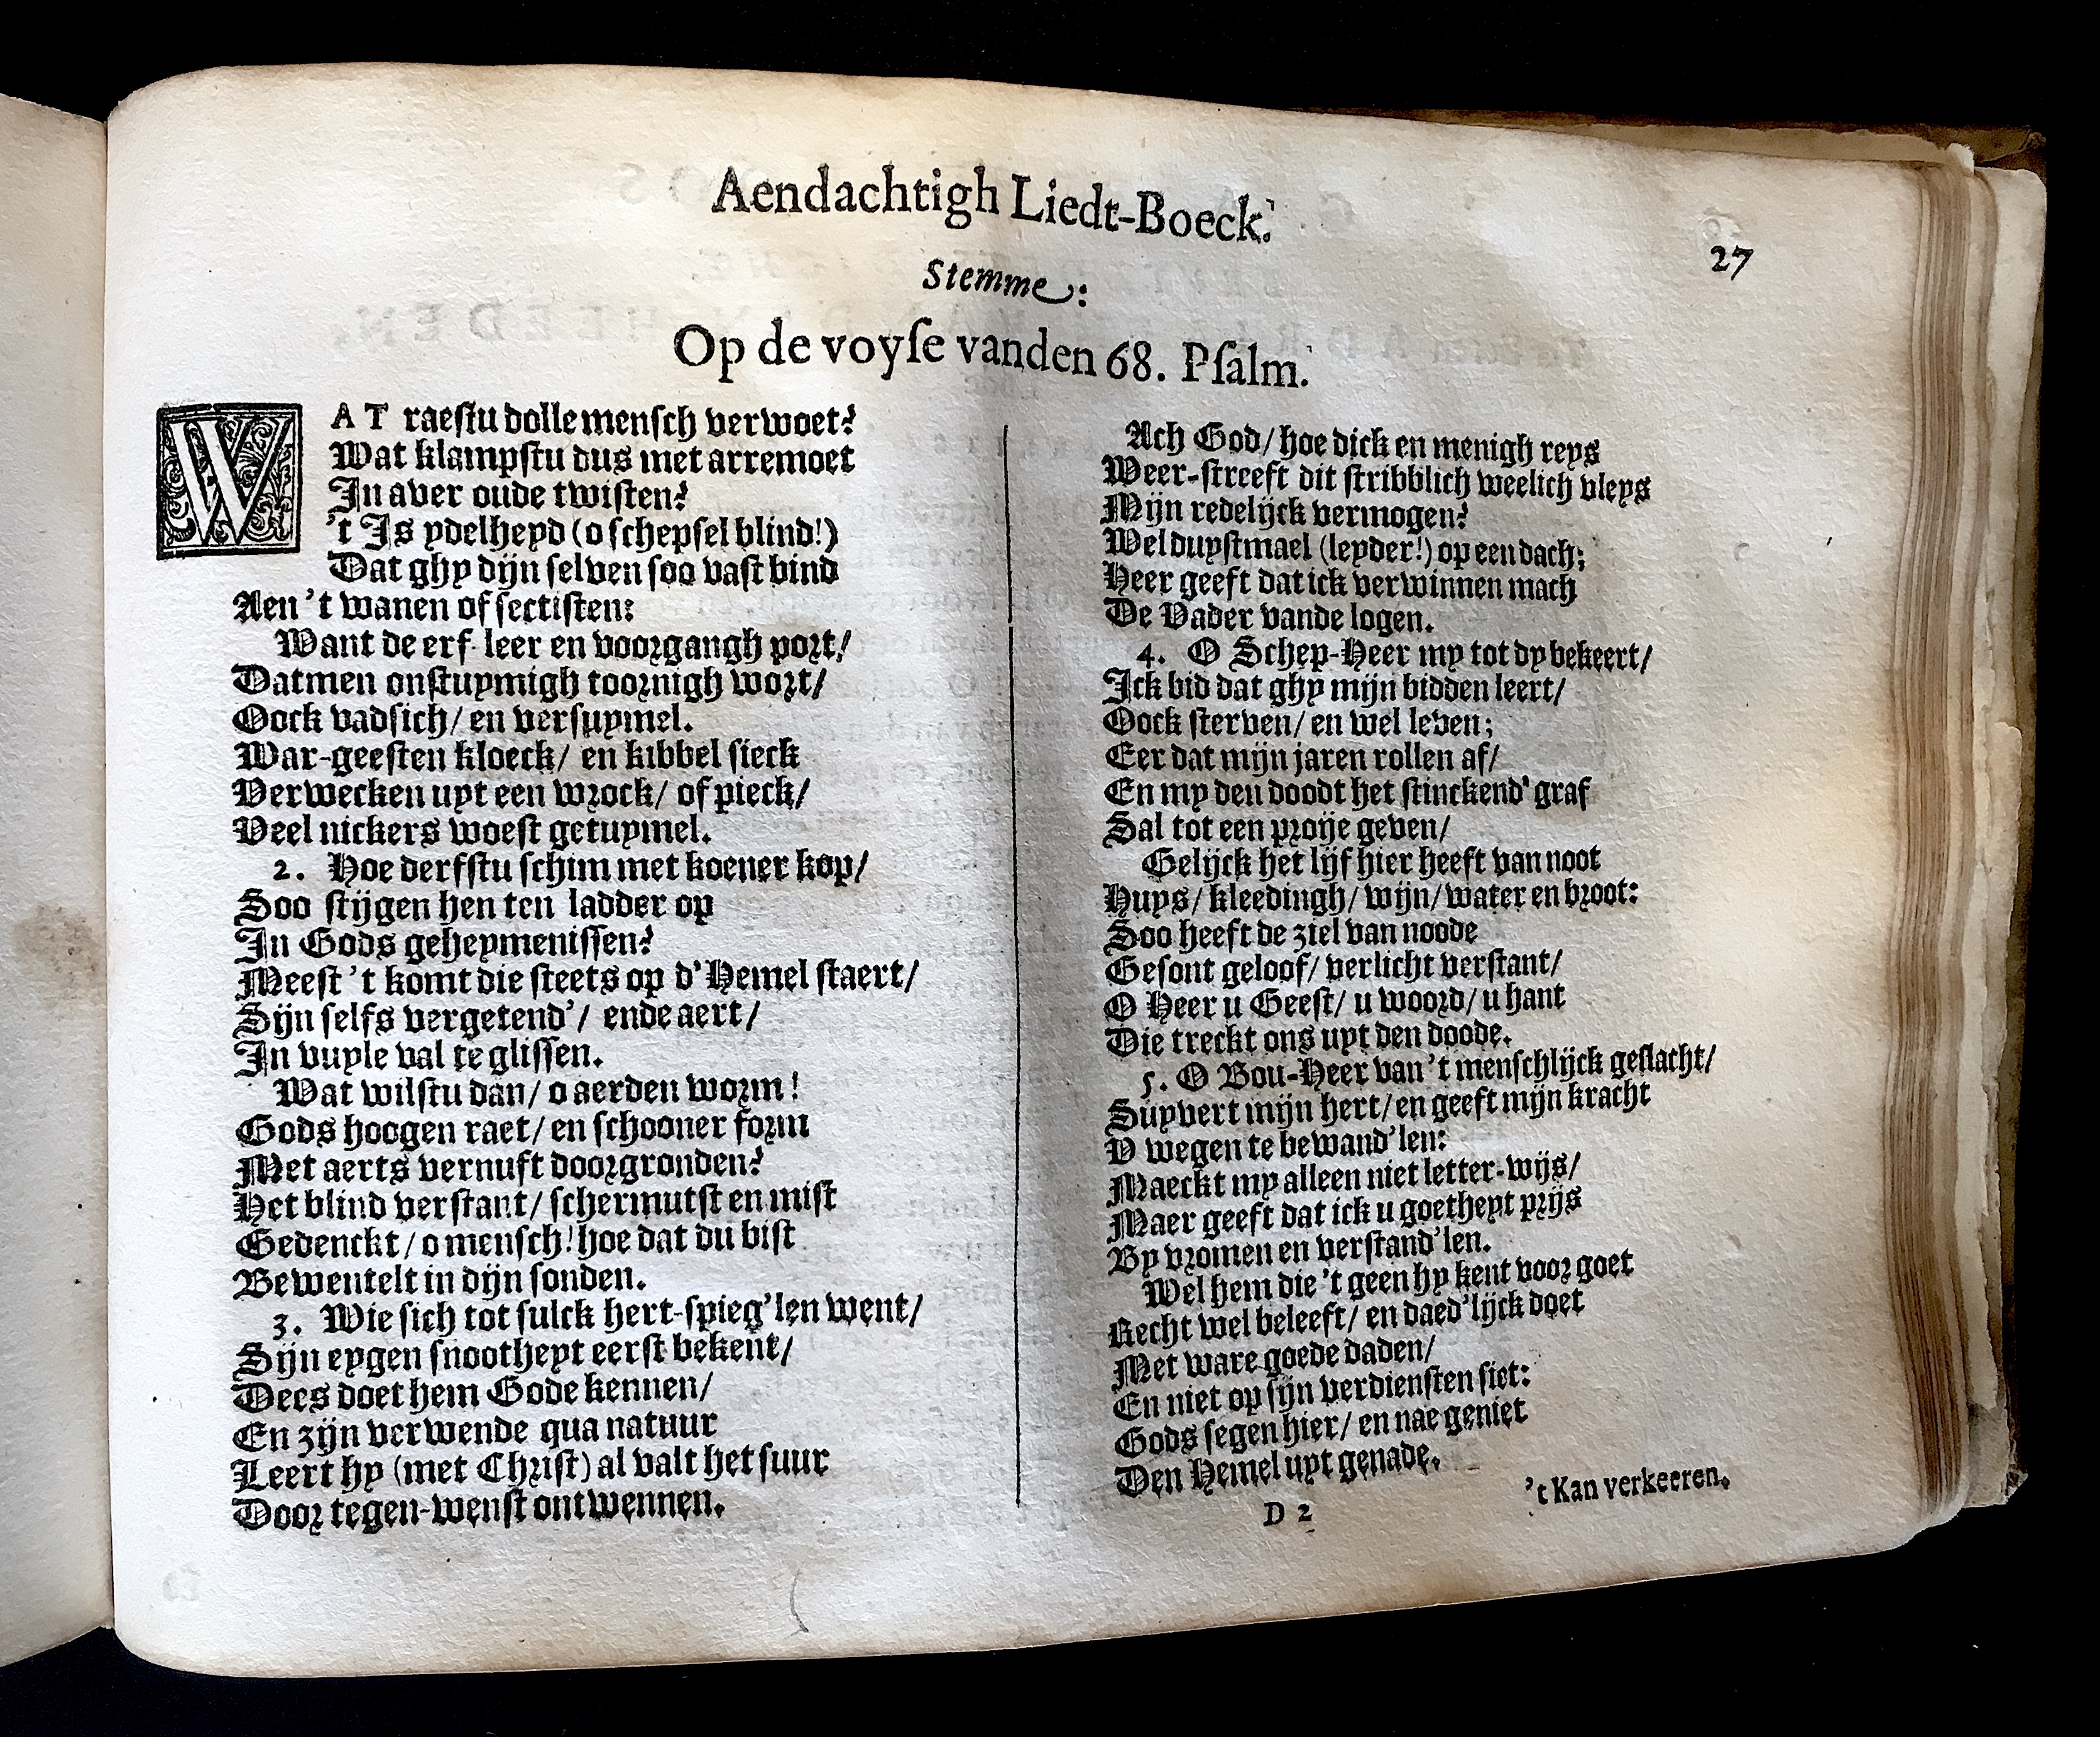 Aendachtigh Liedt-Boeck.
27
Stemme:
Op de voyſe vanden 68. Pſalm.
WAT raeſtu dolle menſch verwoet?
Wat klampſtu dus met arremoet
In aver oude twiſten?
't Is ydelheyd (o ſchepſel blind!)
Dat ghy dijn ſelven ſoo vaſt bind
Aen 't wanen of ſectiſten:
Want de erf-leer en voorgangh port/
Datmen onſtuymigh toornigh wort/
Oock vadſich/ en verſuymel.
War-geeſten kloeck/ en kibbel ſieck
Verwecken uyt een wrock/ of pieck/
Veel nickers woeſt getuymel.
2. Hoe derfſtu ſchim met koener kop/
Soo ſtijgen hen ten ladder op
In Gods geheymeniſſen?
Meeſt 't komt die ſteets op d'Hemel ſtaert/
Sijn ſelfs vergetend'/ ende aert/
In vuyle val te gliſſen.
Wat wilſtu dan/ o aerden worm!
Gods hoogen raet/ en ſchooner form
Met aerts vernuft doorgronden?
Het blind verſtant/ ſchermutſt en miſt
Gedenckt/ o menſch! hoe dat du biſt
Bewentelt in dijn ſonden.
3. Wie ſich tot ſulck hert-ſpieg'len went/
Sijn eygen ſnootheyt eerſt bekent/
Dees doet hem Gode kennen/
En zijn verwende qua natuur
Leert hy (met Chriſt) al valt het ſuur
Door tegen-wenſt ontwennen.
Ach God/ hoe dick en menigh reys
Weer-ſtreeft dit ſtribblich weelich vleys
Mijn redelijck vermogen?
Wel duyſtmael (leyder!) op een dach;
Heer geeft dat ick verwinnen mach
De Vader vande logen.
4. O Schep-Heer my tot dy bekeert/
Ick bid dat ghy mijn bidden leert/
Oock ſterven/ en wel leven;
Eer dat mijn jaren rollen af/
En my den doodt het ſtinckend' graf
Sal tot een proije geven/
Gelijck het lijf hier heeft van noot
Huys/ kleedingh/ wijn/ water en broot:
Soo heeft de ziel van noode
Geſont geloof/ verlicht verſtant/
O Heer u Geeſt/ u woord/ u hant
Die treckt ons uyt den doode.
5. O Bou-Heer van 't menſchlijck geſlacht/
Suyvert mijn hert/ en geeft mijn kracht
V wegen te bewand'len:
Maeckt my alleen niet letter-wijs/
Maer geeft dat ick u goetheyt prijs
By vromen en verſtand'len.
Wel hem die 't geen hy kent voor goet
Recht wel beleeft/ en daed'lijck doet
Met ware goede daden/
En niet op ſijn verdienſten ſiet:
Gods ſegen hier/ en nae geniet
Den Hemel uyt genade.
't Kan verkeeren.
D 2